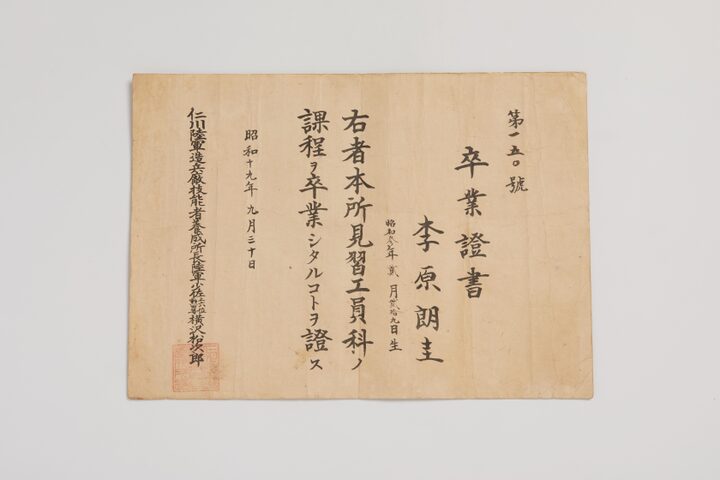 第一五〇號
卒業證書
李原朗圭
昭和参年貳月貳拾九日生
右者本所見習工員科ノ
課程ヲ卒業シタルコトヲ證ス
昭和十九年九月三十日
仁川陸軍造兵廠技能者養成所長陸軍少佐横沢裕次郎